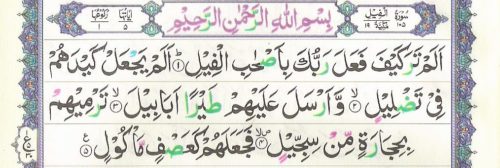 سورة الفيل ١٠٥ مكية ١٩
بِسْمِ اللّٰهِ الرَّحْمٰنِ الرَّحِيْمِ
اٰيَاتُهَا ٥ رُكُوْعُهَا ١
اَلَمْ تَرَ كَيْفَ فَعَلَ رَبُّكَ بِاَصْحٰبِ الْفِيْلِ ۝١ؕ اَلَمْ يَجْعَلْ كَيْدَهُمْ
فِيْ تَضْلِيْلٍ ۝٢ۙ وَّاَرْسَلَ عَلَيْهِمْ طَيْرًا اَبَابِيْلَ ۝٣ۙ تَرْمِيْهِمْ
بِحِجَارَةٍ مِّنْ سِجِّيْلٍ ۝٤ۙ فَجَعَلَهُمْ كَعَصْفٍ مَّاْكُوْلٍ ۝٥ع